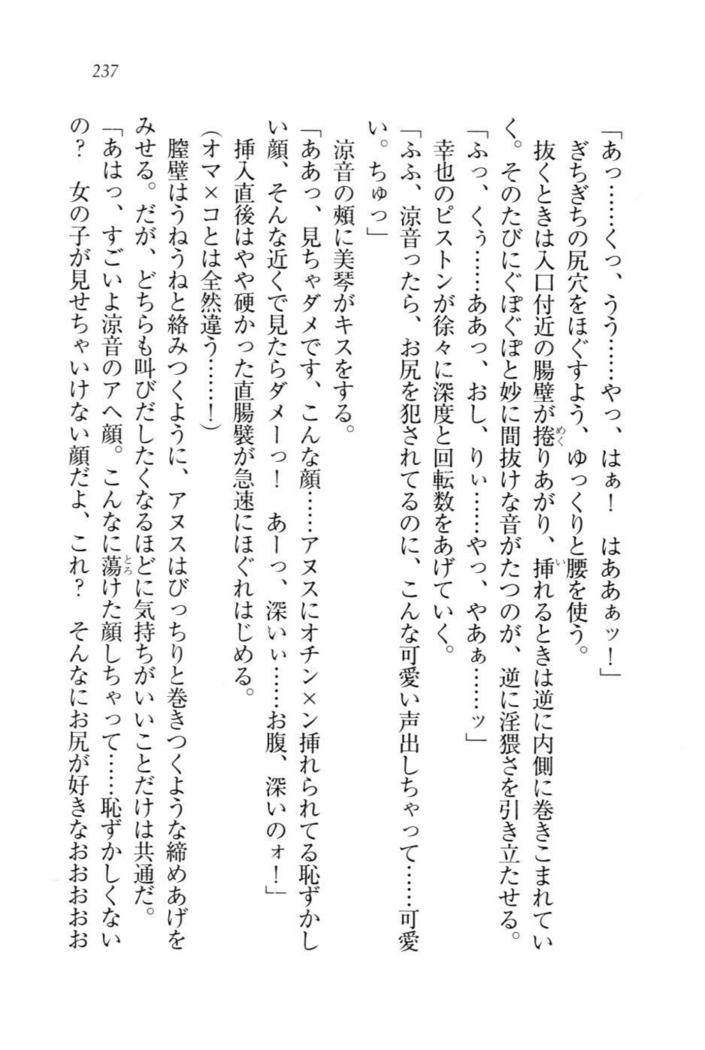 237
「あっ……くっ、うう……やっ、はぁ！　はああぁッ！」
ぎちぎちの尻穴をほぐすよう、ゆっくりと腰を使う。
抜くときは入口付近の腸壁が捲りあがり、挿れるときは逆に内側に巻きこまれてい
く。そのたびにぐぽぐぽと妙に間抜けな音がたつのが、逆に淫猥さを引き立たせる。
「ふっ、くぅ……ああっ、おし、りぃ……やっ、やあぁ……ッ」
幸也のピストンが徐々に深度と回転数をあげていく。
「ふふ、涼音ったら、お尻を犯されてるのに、こんな可愛い声出しちゃって……可愛
い。ちゅっ」
涼音の頬に美琴がキスをする。
「ああっ、見ちゃダメです、こんな顔……アヌスにオチン×ン挿れられてる恥ずかし
い顔、そんな近くで見たらダメーっ！　あーっ、深いぃ……お腹、深いのォ！」
挿入直後はやや硬かった直腸襞が急速にほぐれはじめる。
(オマ×コとは全然違う……！)
膣壁はうねうねと絡みつくように、アヌスはびっちりと巻きつくような締めあげを
みせる。だが、どちらも叫びだしたくなるほどに気持ちがいいことだけは共通だ。
「あはっ、すごいよ涼音のアヘ顔。こんなに蕩けた顔しちゃって……恥ずかしくない
の？　女の子が見せちゃいけない顔だよ、これ？　そんなにお尻が好きなおおおおお